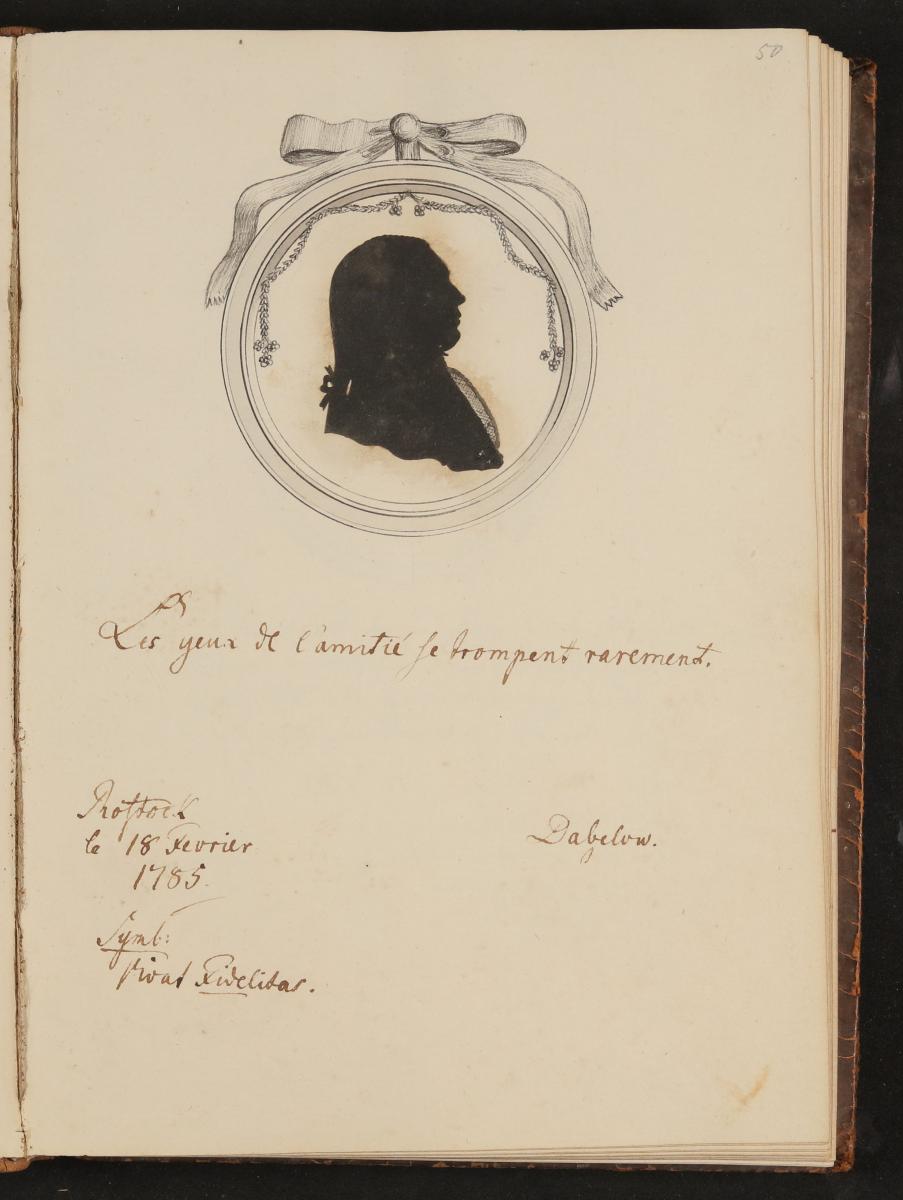 50
Les yeux de l'amitié se trompent rarement.
Rostock
le 18 Fevrier
1785.
Dabelow.
Symb:
Vivat Fidelitas.